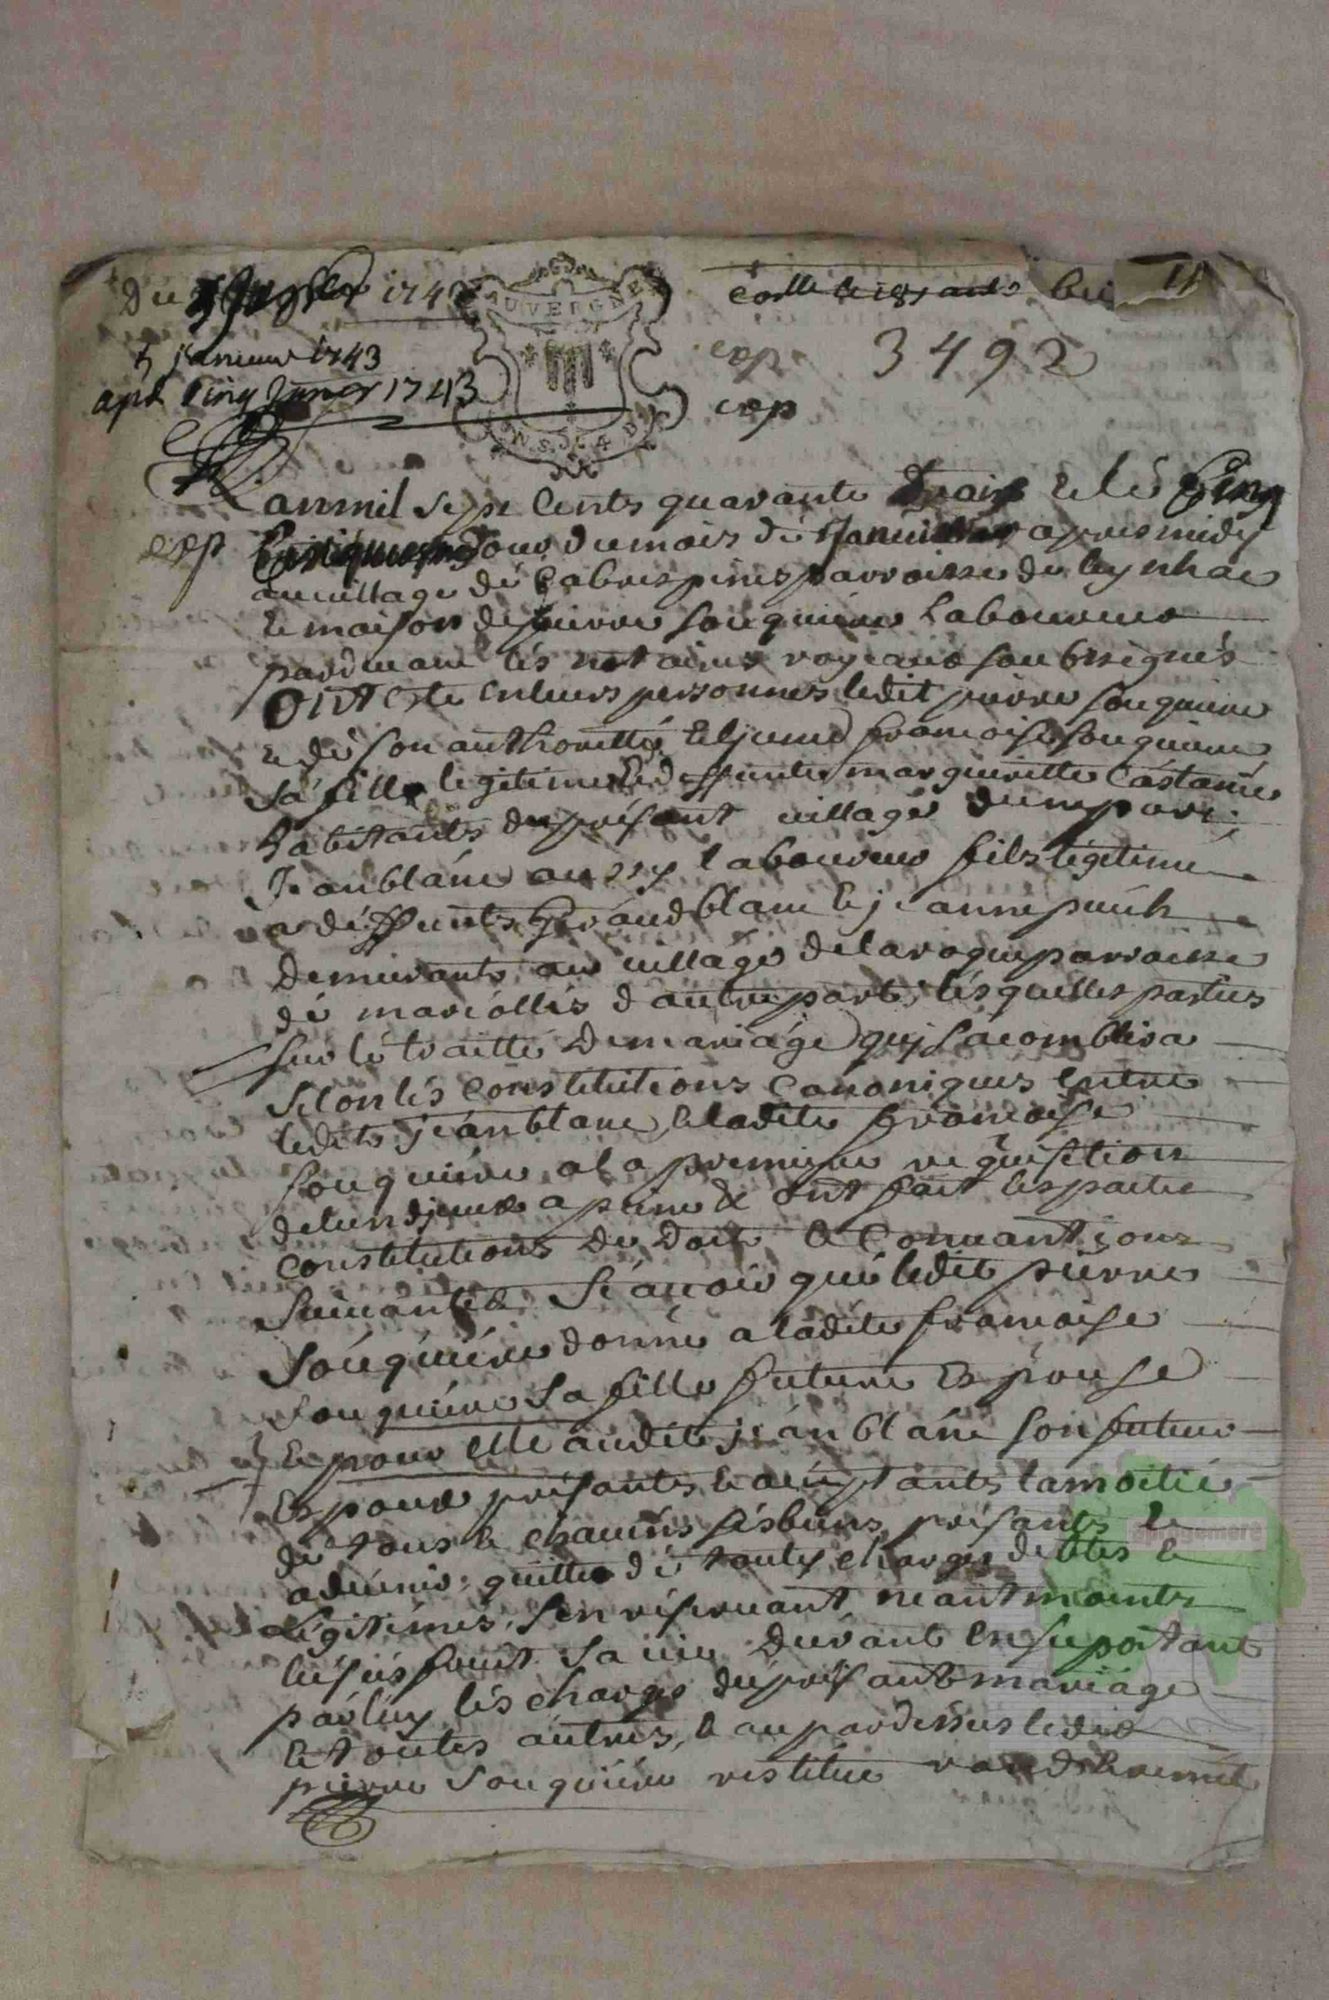 Du 1743
AUVERGNE
cotte le 187 ants
11
5 janvier 1743
exp
3492
apd Cinq Janvier 1743
exp
Lan mil sept Cents quarante trois & le Cinq
exp
jour du mois de Janvier apres midy
au village de Cabrespines parroisse de leynhac
& maison de pierre souquiere Laboureur
pardevant les notaires royeaux soubsignés
ONT esté en leurs personnes ledit pierre souquiere
& de son authoritté françoise souquiere
sa fille legitime & deffunte margueritte Castanie
habitants du présant village d'un part
Jean blanc aussy laboureur filz légitime
a deffunts Géraud blanc & jeanne puech
demurants au village de laroque parroisse
de marcollés d'autre part, lésquelles parties
sur le traitté de mariage quy sacomblira
selon lés constitutions canoniques entre
ledit jean blanc & ladite françoise
souquiere a la premiere requisition
de lun deux a peine & ont fait les pactes
constitutions de doit & convantions
suivantes Sçavoir qué ledit pierre
souquiére donne a ladite françoise
souquiére sa fille future Espouse
& pour elle audit jean blanc son futeur
Espoux présants & acceptants la moitié
dé tous & chacuns sés biens présants &
advenir quitte dé toutes charges debtes &
légitimes, sen réservant néantmoints
lusufruit sa vie durant en suportant
par luy lés charges du présant mariage
& toutes autres, & au pardessus ledit
pierre souquiére restitue rand & remét